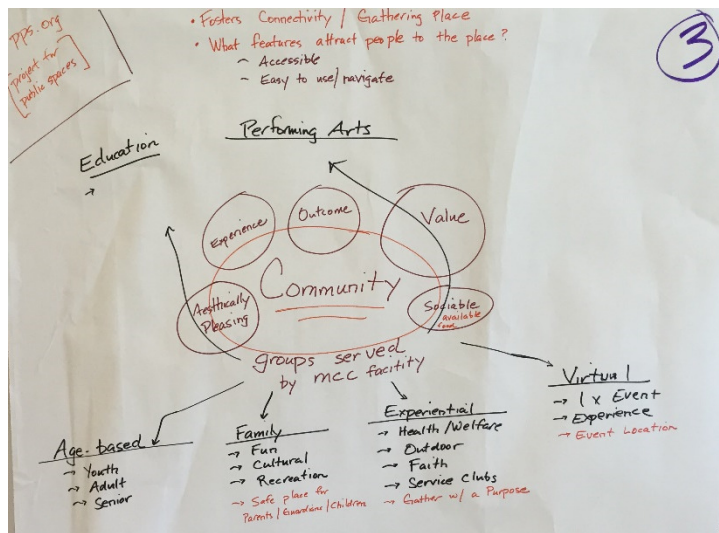 pps.org
[project for
public spaces]
• Fosters Connectivity / Gathering Place
• What features attract people to the place?
- Accessible
- Easy to use/navigate
3
Performing Arts
Education
→
Experience
Outcome
Value
Community
Aesthically
Pleasing
Sociable
available
food
groups served
by mcc facitity
Age-based
→ Youth
→ Adult
→ Senior
Family
→ Fun
→ Cultural
→ Recreation
→ Safe place for
Parents/Guardians/Children
Experiential
→ Health/Welfare
→ Outdoor
→ Faith
→ Service Clubs
→ Gather w/ a Purpose
Virtual
→ 1 x Event
→ Experience
→ Event Location